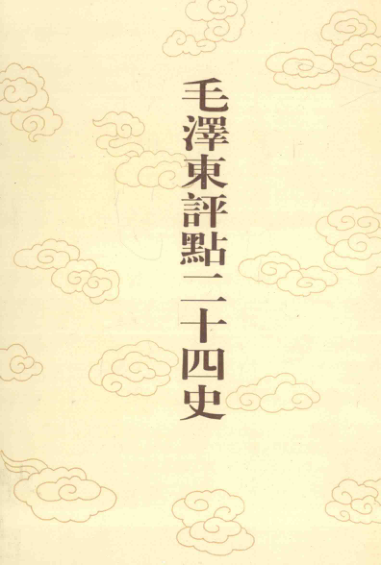 毛澤東評點二十四史